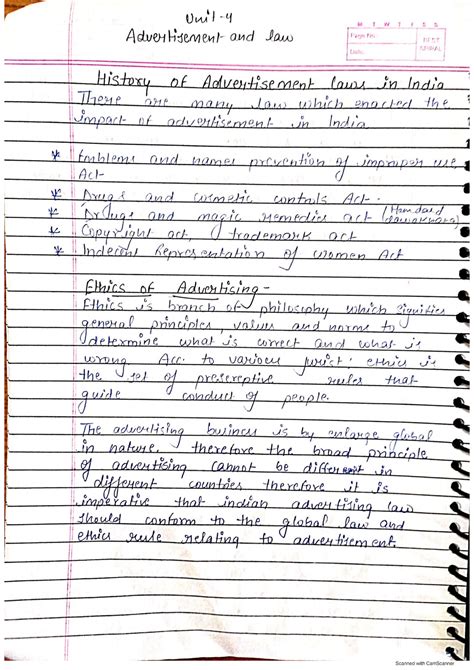 Unit-4
Advertisement and law
M T W T F S S
Page No.:
Date:
History of Advertisement laws in India
There are many law which enacted the
impact of advertisement in India
* Emblems and names prevention of improper use
Act-
* Drugs and cosmetic controls Act-
* Drugs and magic remedies act (Hamdard
dawakhana)
* Copyright act, trademark act
* Indecent Representation of women Act
Ethics of Advertising-
Ethics is branch of philosophy which signifies
general principles, values and norms to
determine what is correct and what is
wrong Acc. to various jurist: ethics is
the set of prescriptive rules that
guide conduct of people.
The advertising business is by enlarge global
in nature, therefore the broad principle
of advertising cannot be different in
different countries therefore it is
imperative that indian advertising law
should conform to the global law and
ethics rule relating to advertisement.
Scanned with CamScanner